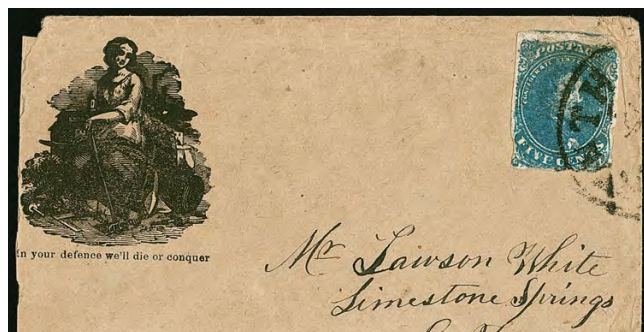 POSTAGE
CONFEDERATE STATES
FIVE CENTS
In your defence we'll die or conquer
Mr Lawson White
Limestone Springs